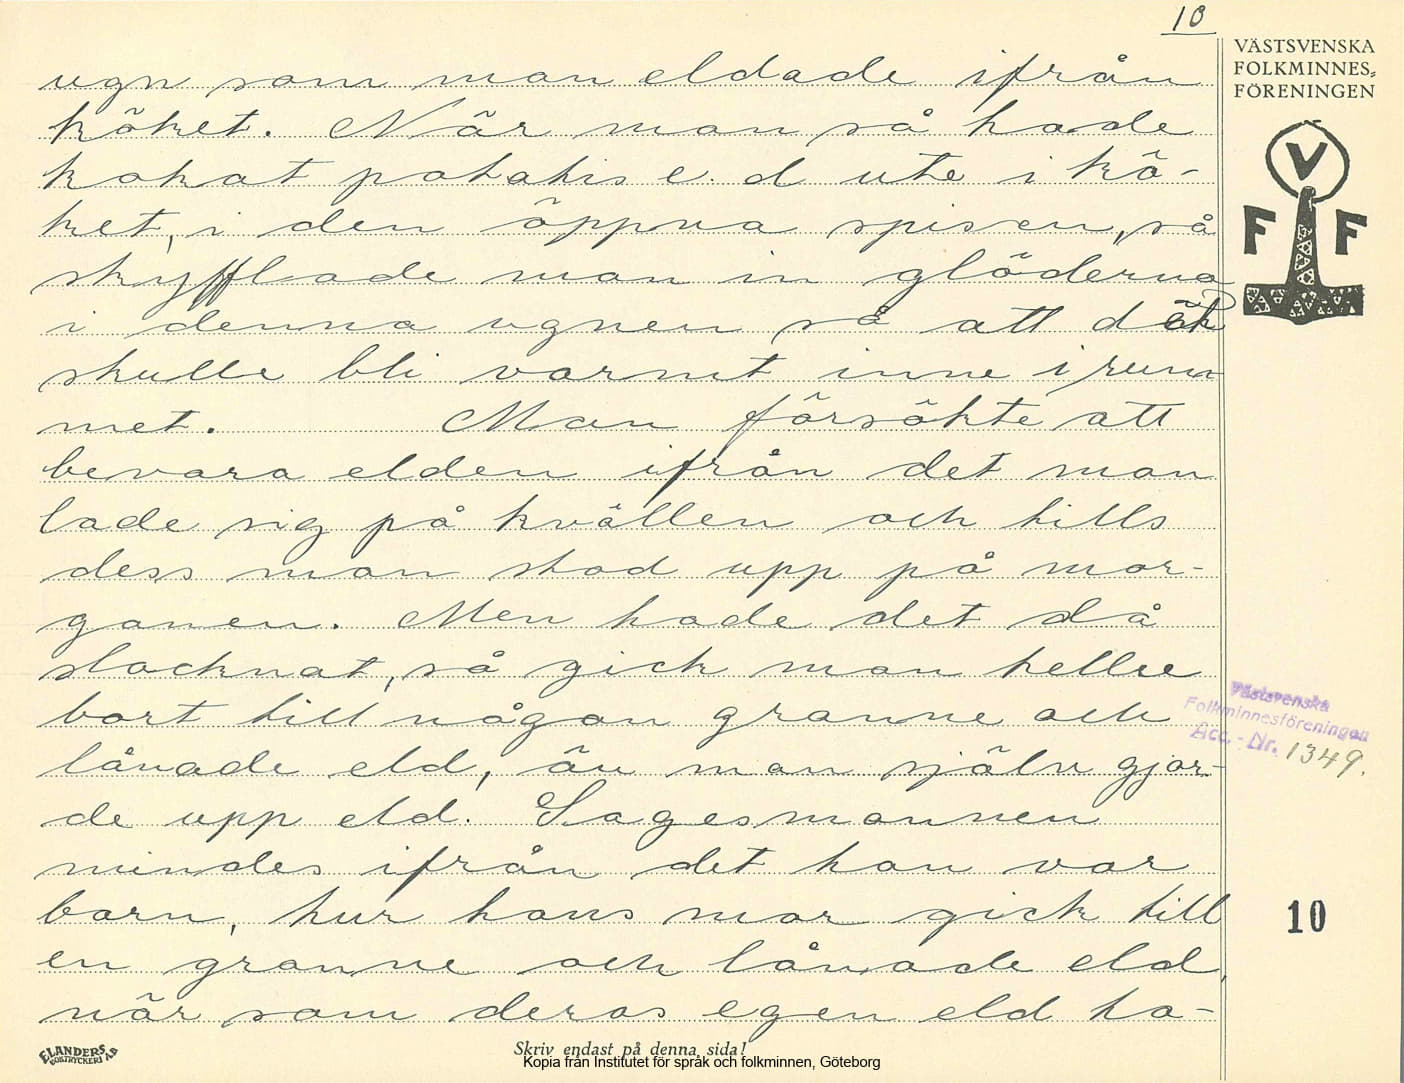 10
VÄSTSVENSKA
FOLKMINNES-
FÖRENINGEN
V
F F
ugn som man eldade ifrån
köket. När man så hade
kokat potatis e. d ute i kö-
ket, i den öppna spisen, så
skyfflade man in glöderna
i denna ugnen så att där
skulle bli varmt inne i rum-
met. Man försökte att
bevara elden ifrån det man
lade sig på kvällen och tills
dess man stod upp på mor-
ganen. Men hade det då
slocknat, så gick man hellre
bort till någon granne och
lånade eld, än man själv gjor-
de upp eld. Sagesmannen
mindes ifrån det han var
barn, hur hans mor gick till
en granne och lånade eld,
när som deras egen eld ha-
Västsvenska
Folkminnesföreningen
Acc. - Nr. 1349.
10
ELANDERS
BOKTRYCKERI AB
Skriv endast på denna sida!
Kopia från Institutet för språk och folkminnen, Göteborg